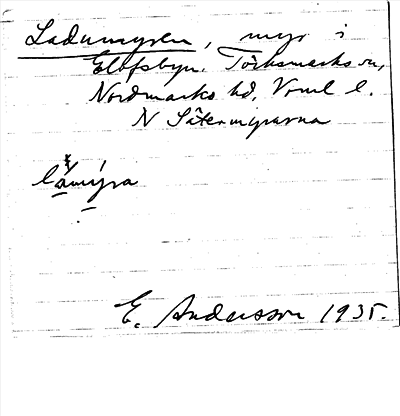 Ladumyren, myr i
Elofsbyn. Töcksmarks sn,
Nordmarks hd, Vrml l.
N Sätermyrarna
låmýra
E. Andersson 1935.